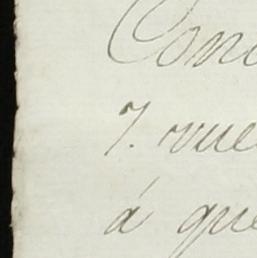 Con
7. vue
á que